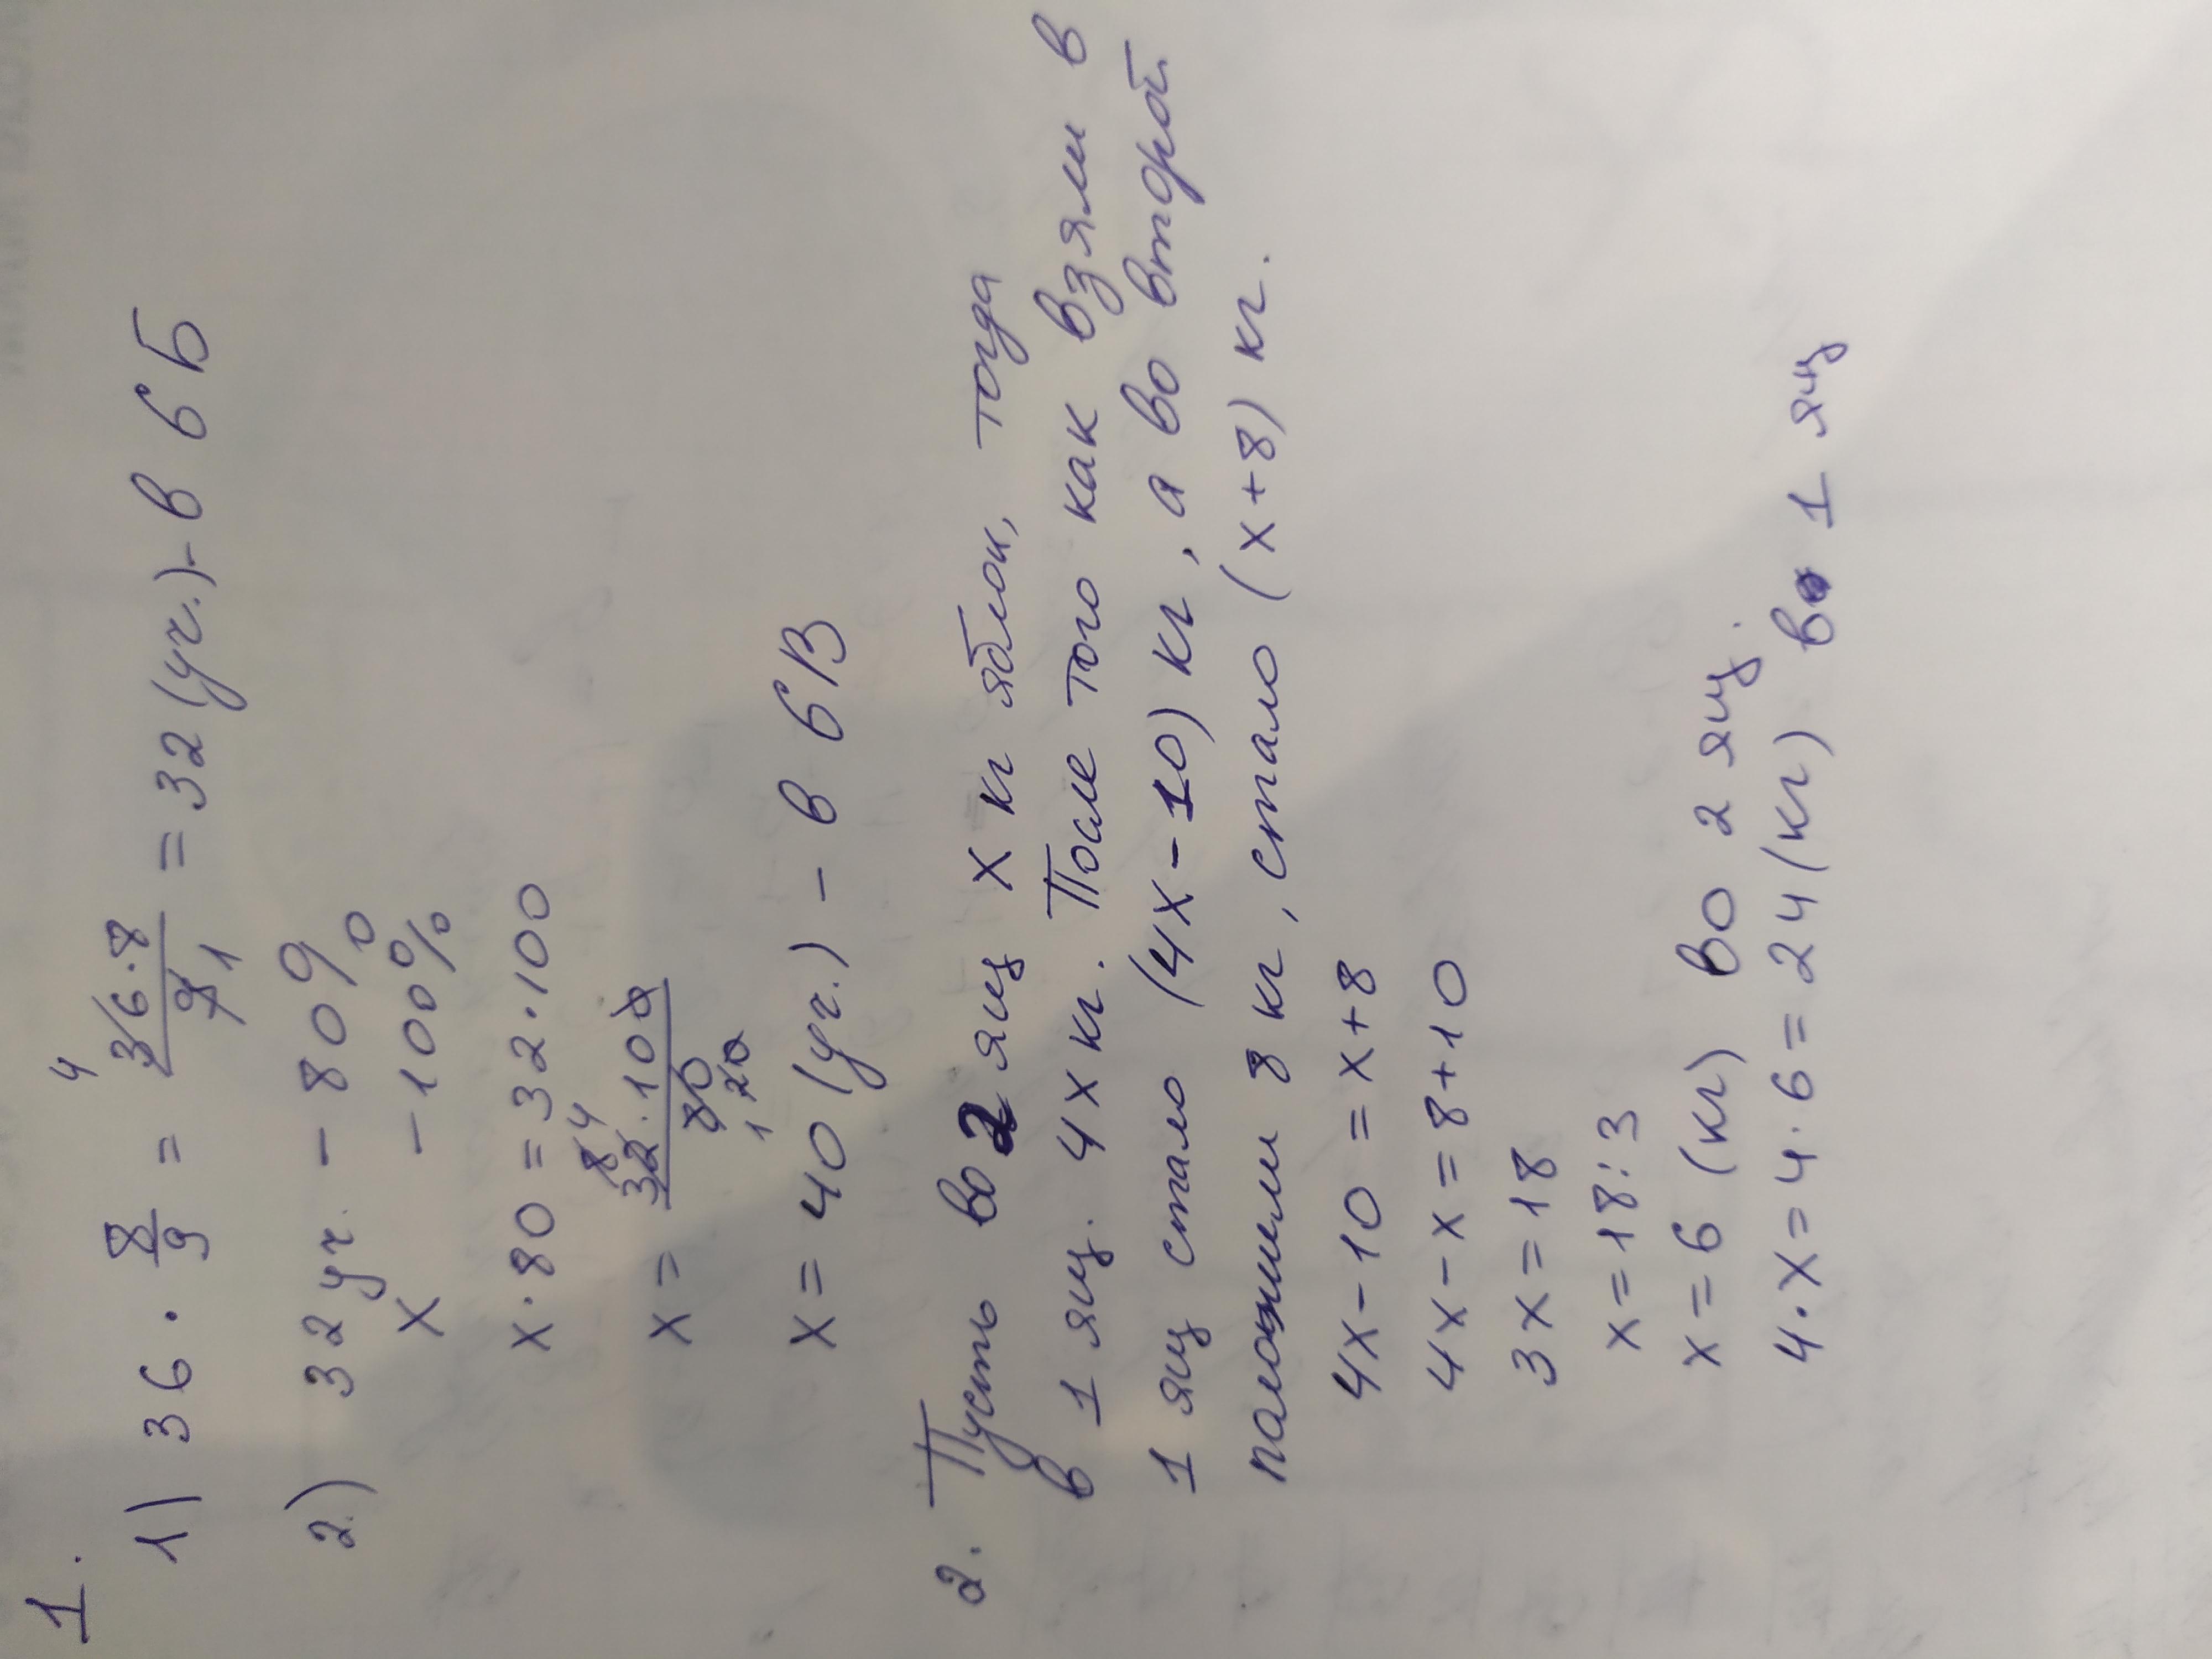 1.
1) 36 · 8/9 = 36·8/9 = 32 (уч.) - в 6 Б
4
1
2) 32 уч. - 80%
х - 100%
х · 80 = 32 · 100
х = 32 · 100/80
8 4
1 20
х = 40 (уч.) - в 6 В
2. Пусть во 2 ящ х кг яблок, тогда
в 1 ящ. 4х кг. После того как взяли в
1 ящ стало (4х-10) кг, а во второй
положили 8 кг, стало (х+8) кг.
4х-10=х+8
4х-х=8+10
3х=18
х=18:3
х=6 (кг) во 2 ящ.
4·х=4·6=24(кг) в 1 ящ